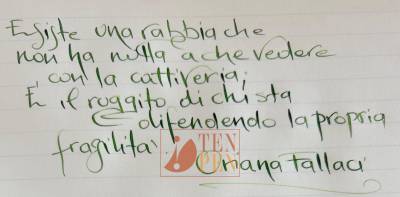 Esiste una rabbia che
non ha nulla a che vedere
con la cattiveria;
È il ruggito di chi sta
difendendo la propria
fragilità.
Oriana Fallaci
TEN
PEN